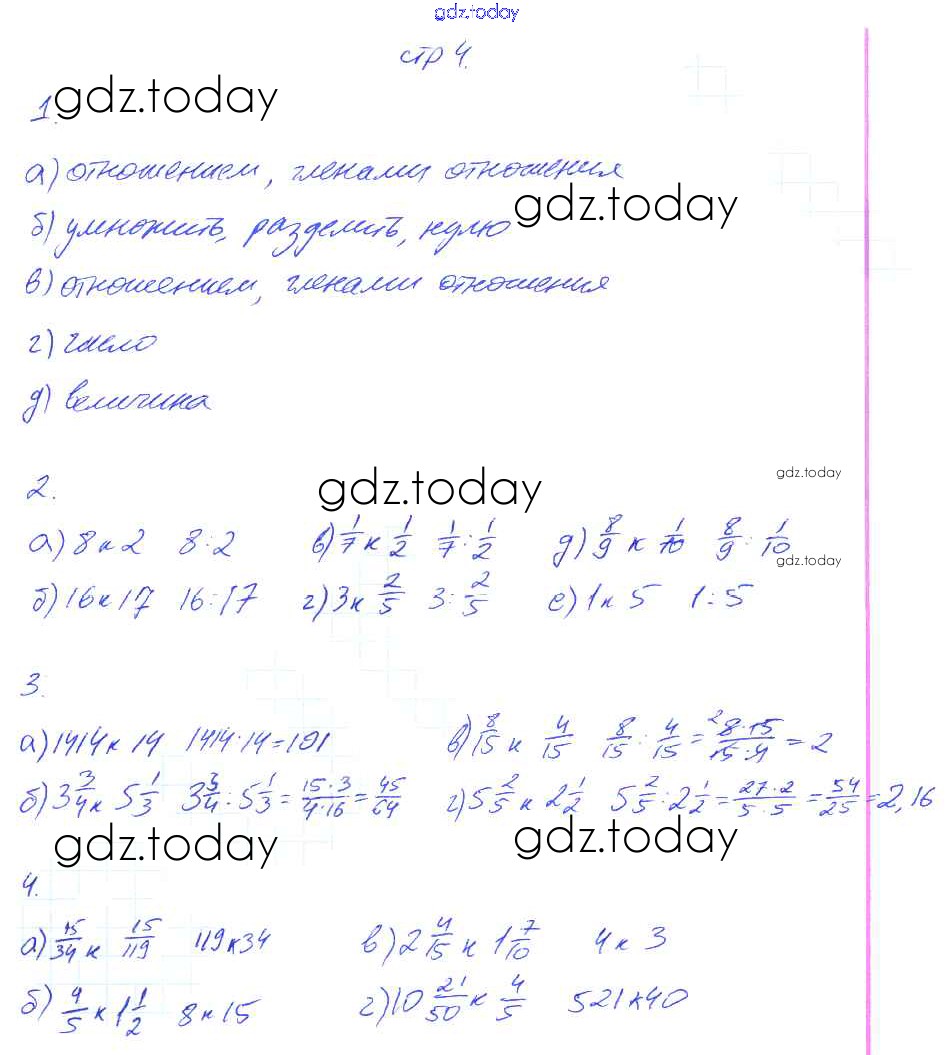 gdz.today
стр 4.
gdz.today
1.
а) отношением, членами отношения
gdz.today
б) умножить, разделить, нулю
в) отношением, членами отношения
г) число
д) величина
gdz.today
2.
gdz.today
а) 8 к 2 8:2 в) 1/7 к 1/2 1/7 : 1/2 д) 8/9 к 1/10 8/9 : 1/10
gdz.today
б) 16 к 17 16:17 г) 3 к 2/5 3 : 2/5 е) 1 к 5 1:5
3.
а) 1414 к 14 1414:14=101 в) 8/15 к 4/15 8/15 : 4/15 = 8·15/15·4 = 2
б) 3 3/4 к 5 1/3 3 3/4 : 5 1/3 = 15·3/4·16 = 45/64 г) 5 2/5 к 2 1/2 5 2/5 : 2 1/2 = 27·2/5·5 = 54/25 = 2,16
gdz.today gdz.today
4.
а) 15/34 к 15/119 119 к 34 в) 2 4/15 к 1 7/10 4 к 3
б) 4/5 к 1 1/2 8 к 15 г) 10 21/50 к 4/5 521 к 40